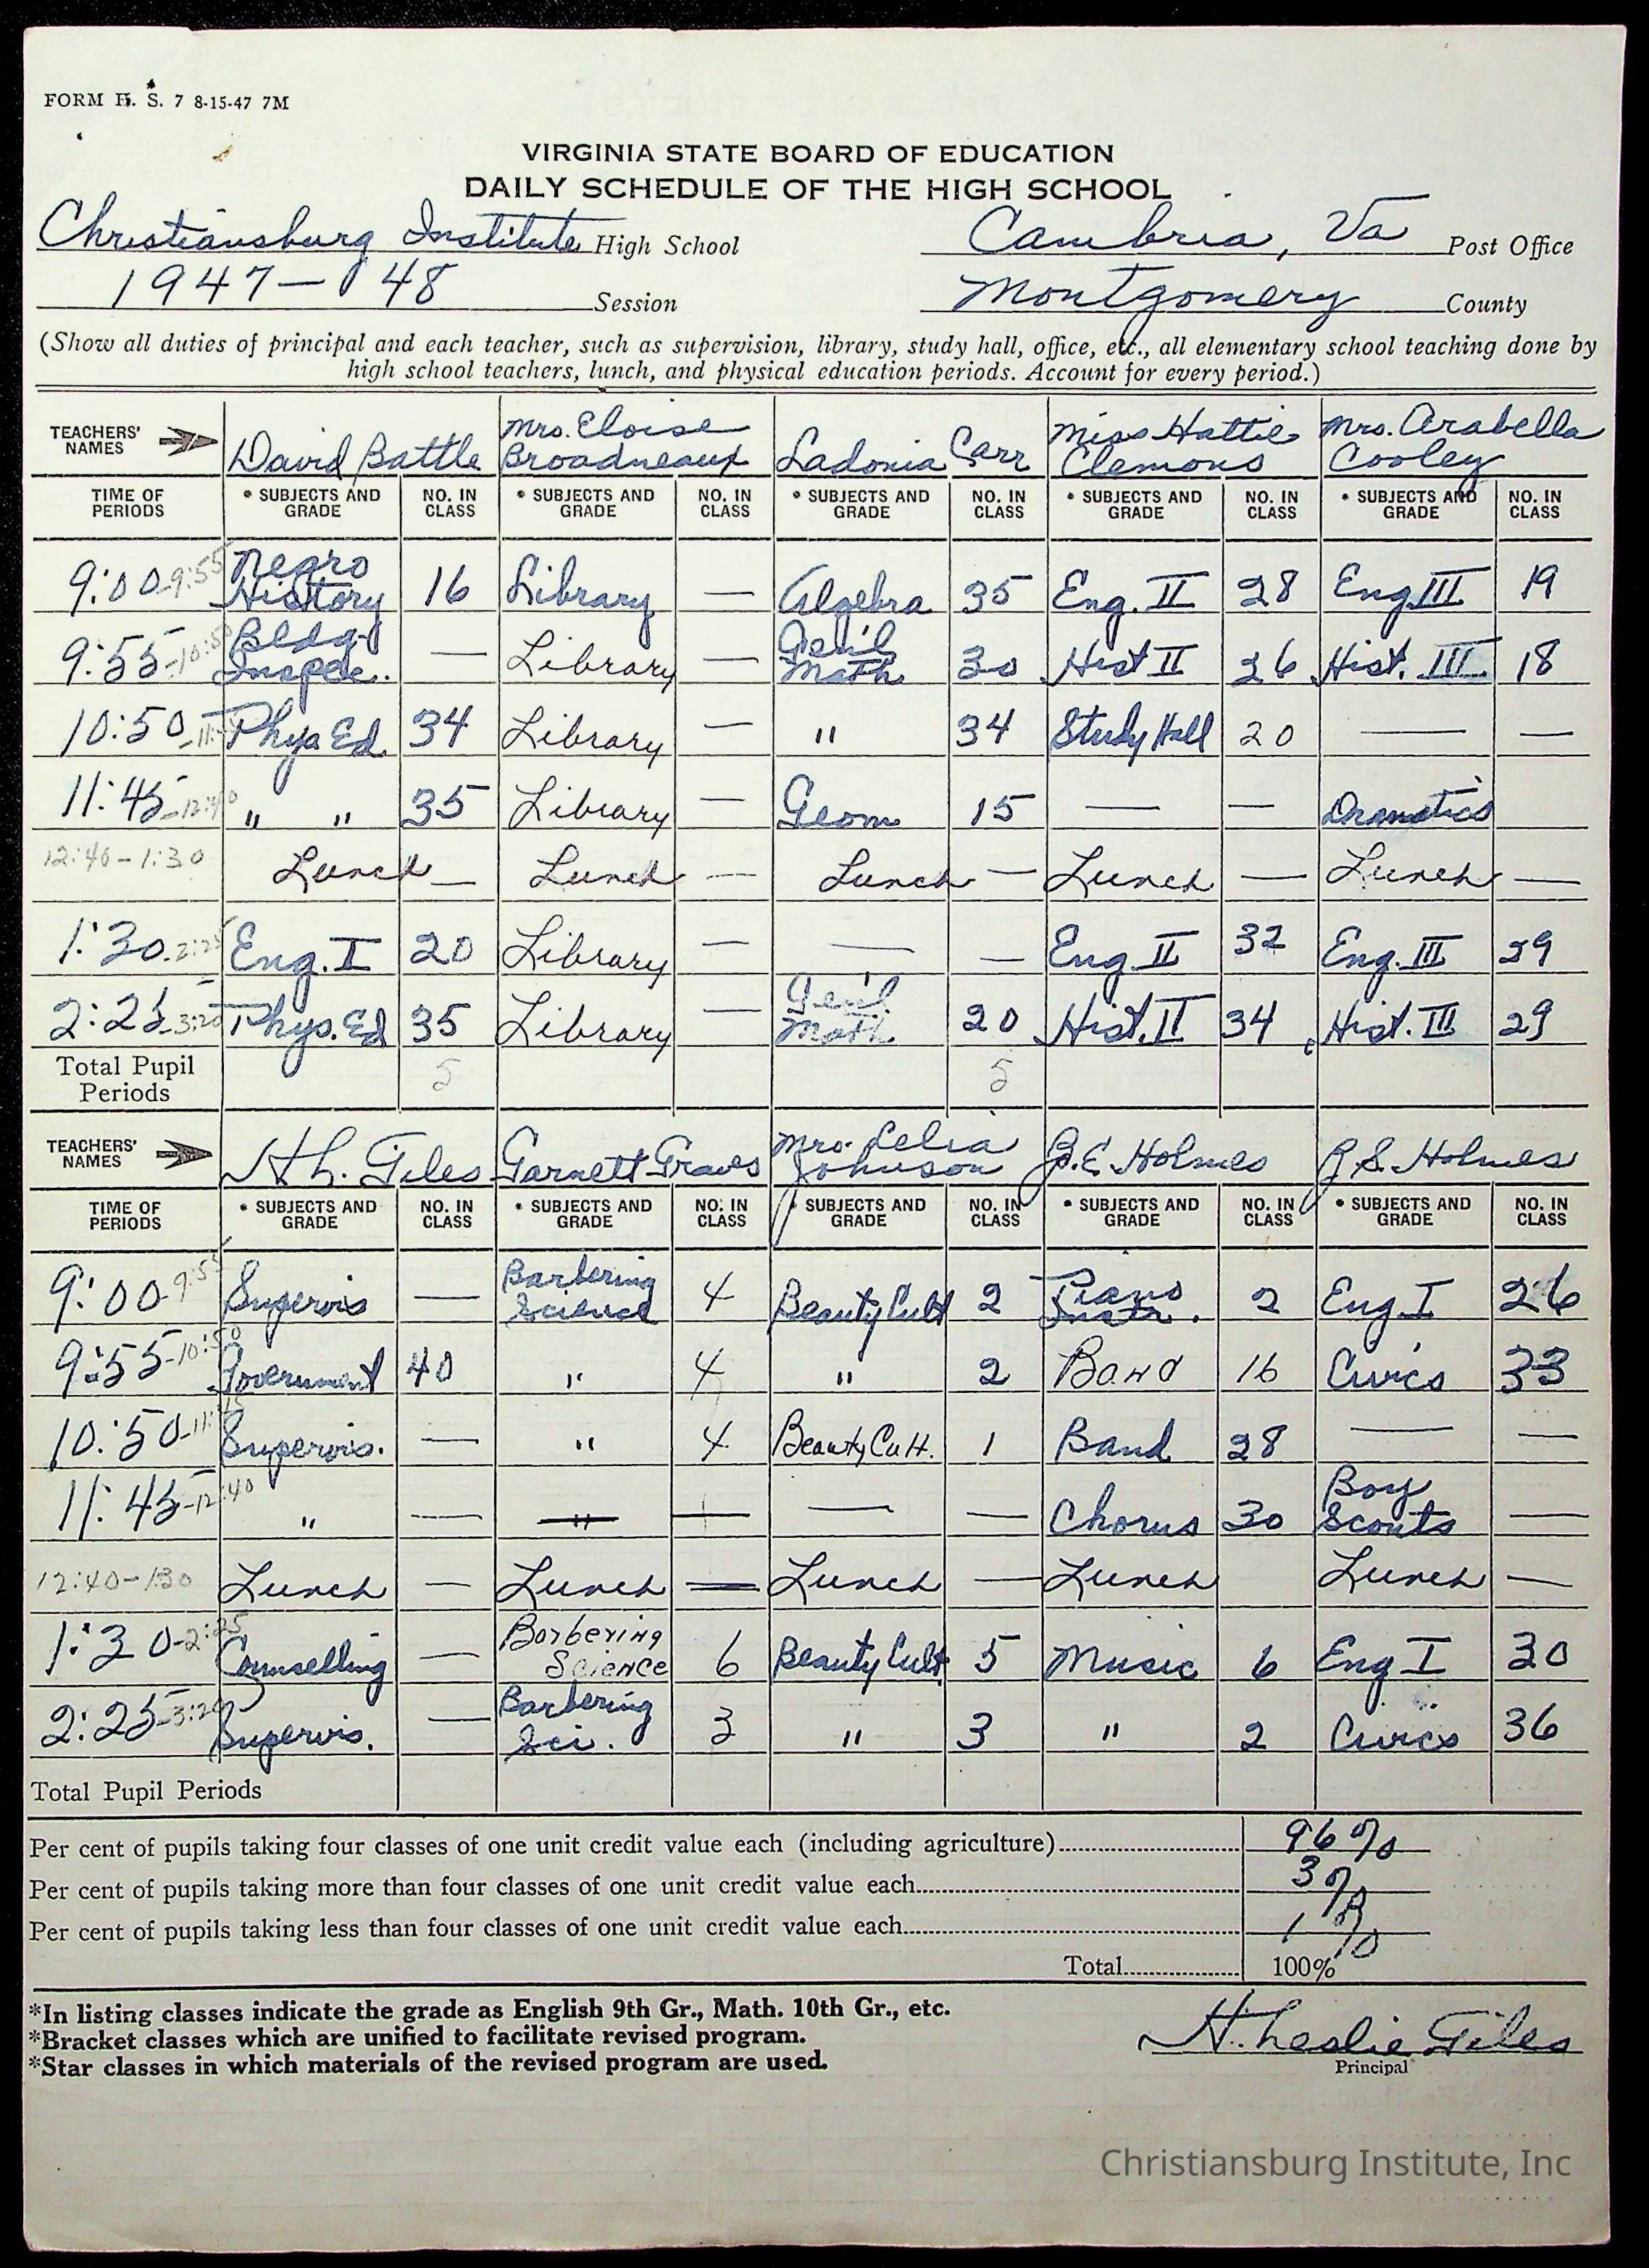 FORM H. S. 7 8-15-47 7M
VIRGINIA STATE BOARD OF EDUCATION
DAILY SCHEDULE OF THE HIGH SCHOOL
Christiansburg Institute High School Cambria, Va Post Office
1947-48 Session Montgomery County
(Show all duties of principal and each teacher, such as supervision, library, study hall, office, etc., all elementary school teaching done by
high school teachers, lunch, and physical education periods. Account for every period.)
TEACHERS' NAMES David Battle Mrs. Eloise Broadneaux Ladonia Carr Miss Hattie Clemons Mrs. Arabella Cooley
TIME OF PERIODS * SUBJECTS AND GRADE NO. IN CLASS * SUBJECTS AND GRADE NO. IN CLASS * SUBJECTS AND GRADE NO. IN CLASS * SUBJECTS AND GRADE NO. IN CLASS * SUBJECTS AND GRADE NO. IN CLASS
9:00-9:55 Negro History 16 Library — Algebra 35 Eng. II 28 Eng III 19
9:55-10:50 Bldg. Inspec. — Library — Gen'l Math 30 Hist II 26 Hist. III 18
10:50-11: Phys Ed. 34 Library — " 34 Study Hall 20 — —
11:45-12:40 " " 35 Library — Geom 15 — — Dramatics
12:40-1:30 Lunch — Lunch — Lunch — Lunch — Lunch —
1:30-2:25 Eng. I 20 Library — — — Eng II 32 Eng. III 29
2:25-3:20 Phys. Ed 35 Library — Gen'l Math. 20 Hist. II 34 Hist. III 29
Total Pupil Periods 5 5
TEACHERS' NAMES H.L. Giles Garnett Graves Mrs. Lelia Johnson J.E. Holmes R.S. Holmes
TIME OF PERIODS * SUBJECTS AND GRADE NO. IN CLASS * SUBJECTS AND GRADE NO. IN CLASS * SUBJECTS AND GRADE NO. IN CLASS * SUBJECTS AND GRADE NO. IN CLASS * SUBJECTS AND GRADE NO. IN CLASS
9:00-9:55 Supervis — Barbering Science 4 Beauty Cult 2 Piano Instr. 2 Eng I 26
9:55-10:50 Government 40 " 4 " 2 Band 16 Civics 33
10:50-11:45 Supervis. — " 4 Beauty Cult. 1 Band 28 — —
11:45-12:40 " — " — — — Chorus 30 Boy Scouts —
12:40-1:30 Lunch — Lunch — Lunch — Lunch Lunch —
1:30-2:25 Counselling — Barbering Science 6 Beauty Cult 5 Music 6 Eng I 30
2:25-3:20 Supervis. — Barbering Sci. 3 " 3 " 2 Civics 36
Total Pupil Periods
Per cent of pupils taking four classes of one unit credit value each (including agriculture) 96%
Per cent of pupils taking more than four classes of one unit credit value each 3%
Per cent of pupils taking less than four classes of one unit credit value each 1%
Total 100%
*In listing classes indicate the grade as English 9th Gr., Math. 10th Gr., etc.
*Bracket classes which are unified to facilitate revised program.
*Star classes in which materials of the revised program are used.
H. Leslie Giles
Principal
Christiansburg Institute, Inc